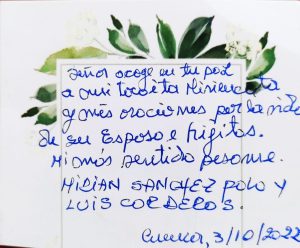 Señor acoge en tu paz
a mi
y mis oraciones por la vida
de su Esposo e hijitos.
Mi más sentido pesame.
MIRIAN SANCHEZ POLO Y
LUIS CORDERO S.
Cuenca, 3/10/2022